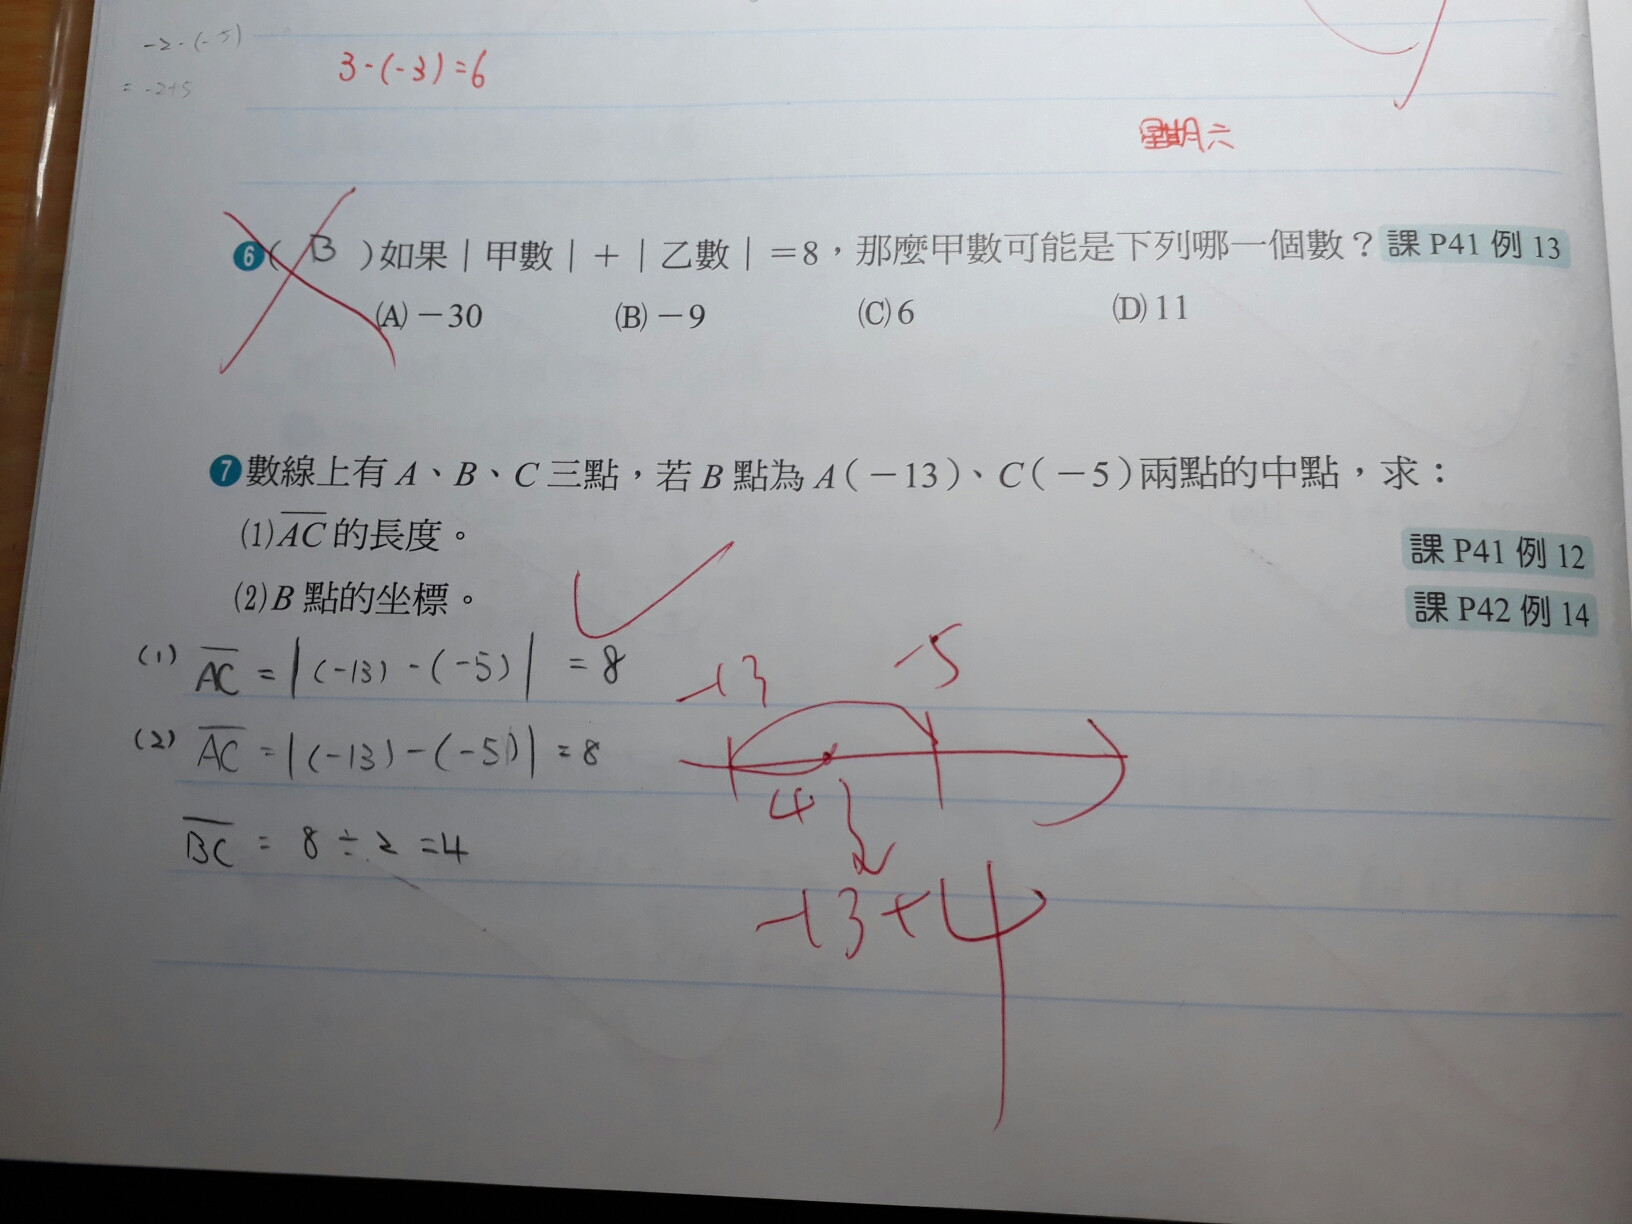 -2-(-5)
= -2+5
3-(-3)=6
星期六
6( B )如果|甲數|+|乙數|=8，那麼甲數可能是下列哪一個數？ 課 P41 例 13
(A)-30 (B)-9 (C)6 (D)11
7 數線上有 A、B、C 三點，若 B 點為 A(-13)、C(-5)兩點的中點，求：
(1)A̅C̅ 的長度。
課 P41 例 12
(2)B 點的坐標。
課 P42 例 14
(1) A̅C̅ = |(-13)-(-5)| = 8
(2) A̅C̅ = |(-13)-(-5)| = 8
B̅C̅ = 8÷2=4
-13 -5
4
-13+4